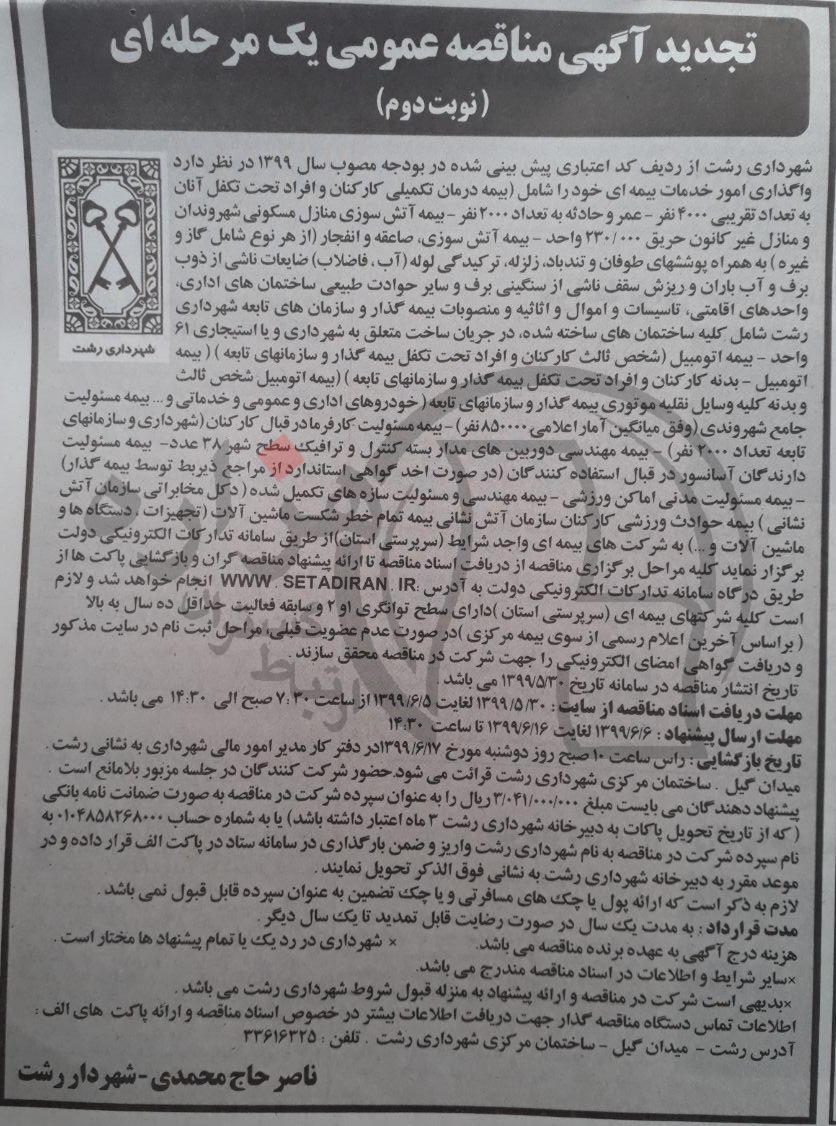 تجدید آگهی مناقصه عمومی یک مرحله ای
(نوبت دوم)
شهرداری رشت از ردیف کد اعتباری پیش بینی شده در بودجه مصوب سال ۱۳۹۹ در نظر دارد
واگذاری امور خدمات بیمه ای خود را شامل (بیمه درمان تکمیلی کارکنان و افراد تحت تکفل آنان
به تعداد تقریبی ۴۰۰۰ نفر - عمر و حادثه به تعداد ۲۰۰۰ نفر - بیمه آتش سوزی منازل مسکونی شهروندان
و منازل غیر کانون حریق ۲۳۰/۰۰۰ واحد - بیمه آتش سوزی، صاعقه و انفجار (از هر نوع شامل گاز و
غیره) به همراه پوششهای طوفان و تندباد، زلزله، ترکیدگی لوله (آب ، فاضلاب) ضایعات ناشی از ذوب
برف و آب باران و ریزش سقف ناشی از سنگینی برف و سایر حوادث طبیعی ساختمان های اداری،
واحدهای اقامتی، تاسیسات و اموال و اثاثیه و منصوبات بیمه گذار و سازمان های تابعه شهرداری
رشت شامل کلیه ساختمان های ساخته شده، در جریان ساخت متعلق به شهرداری و یا استیجاری ۶۱
واحد - بیمه اتومبیل (شخص ثالث کارکنان و افراد تحت تکفل بیمه گذار و سازمانهای تابعه ) ( بیمه
اتومبیل - بدنه کارکنان و افراد تحت تکفل بیمه گذار و سازمانهای تابعه ) (بیمه اتومبیل شخص ثالث
و بدنه کلیه وسایل نقلیه موتوری بیمه گذار و سازمانهای تابعه ( خودروهای اداری و عمومی و خدماتی و... بیمه مسئولیت
جامع شهروندی (وفق میانگین آمار اعلامی ۸۵۰۰۰۰ نفر) - بیمه مسئولیت کارفرما در قبال کارکنان (شهرداری و سازمانهای
تابعه تعداد ۲۰۰۰ نفر) - بیمه مهندسی دوربین های مدار بسته کنترل و ترافیک سطح شهر ۳۸ عدد- بیمه مسئولیت
دارندگان آسانسور در قبال استفاده کنندگان (در صورت اخذ گواهی استاندارد از مراجع ذیربط توسط بیمه گذار)
- بیمه مسئولیت مدنی اماکن ورزشی - بیمه مهندسی و مسئولیت سازه های تکمیل شده ( دکل مخابراتی سازمان آتش
نشانی ) بیمه حوادث ورزشی کارکنان سازمان آتش نشانی بیمه تمام خطر شکست ماشین آلات (تجهیزات ، دستگاه ها و
ماشین آلات و ...) به شرکت های بیمه ای واجد شرایط (سرپرستی استان) از طریق سامانه تدارکات الکترونیکی دولت
برگزار نماید کلیه مراحل برگزاری مناقصه از دریافت اسناد مناقصه تا ارائه پیشنهاد مناقصه گران و بازگشایی پاکت ها از
طریق درگاه سامانه تدارکات الکترونیکی دولت به آدرس :WWW . SETADIRAN . IR انجام خواهد شد و لازم
است کلیه شرکتهای بیمه ای (سرپرستی استان ) دارای سطح توانگری ۱و ۲ و سابقه فعالیت حداقل ده سال به بالا
( براساس آخرین اعلام رسمی از سوی بیمه مرکزی ) در صورت عدم عضویت قبلی، مراحل ثبت نام در سایت مذکور
و دریافت گواهی امضای الکترونیکی را جهت شرکت در مناقصه محقق سازند .
تاریخ انتشار مناقصه در سامانه تاریخ ۱۳۹۹/۵/۳۰ می باشد .
مهلت دریافت اسناد مناقصه از سایت : ۱۳۹۹/۵/۳۰ لغایت ۱۳۹۹/۶/۵ از ساعت ۷:۳۰ صبح الی ۱۴:۳۰ می باشد .
مهلت ارسال پیشنهاد : ۱۳۹۹/۶/۶ لغایت ۱۳۹۹/۶/۱۶ تا ساعت ۱۴:۳۰
تاریخ بازگشایی : راس ساعت ۱۰ صبح روز دوشنبه مورخ ۱۳۹۹/۶/۱۷ در دفتر کار مدیر امور مالی شهرداری به نشانی رشت .
میدان گیل . ساختمان مرکزی شهرداری رشت قرائت می شود. حضور شرکت کنندگان در جلسه مزبور بلامانع است .
پیشنهاد دهندگان می بایست مبلغ ۳/۰۴۱/۰۰۰/۰۰۰ ریال را به عنوان سپرده شرکت در مناقصه به صورت ضمانت نامه بانکی
( که از تاریخ تحویل پاکات به دبیرخانه شهرداری رشت ۳ ماه اعتبار داشته باشد) یا به شماره حساب ۰۱۰۴۸۵۸۲۶۸۰۰۰ به
نام سپرده شرکت در مناقصه به نام شهرداری رشت واریز و ضمن بارگذاری در سامانه ستاد در پاکت الف قرار داده و در
موعد مقرر به دبیرخانه شهرداری رشت به نشانی فوق الذکر تحویل نمایند .
لازم به ذکر است که ارائه پول یا چک های مسافرتی و یا چک تضمین به عنوان سپرده قابل قبول نمی باشد .
مدت قرارداد : به مدت یک سال در صورت رضایت قابل تمدید تا یک سال دیگر .
هزینه درج آگهی به عهده برنده مناقصه می باشد. × شهرداری در رد یک یا تمام پیشنهاد ها مختار است .
×سایر شرایط و اطلاعات در اسناد مناقصه مندرج می باشد.
×بدیهی است شرکت در مناقصه و ارائه پیشنهاد به منزله قبول شروط شهرداری رشت می باشد .
اطلاعات تماس دستگاه مناقصه گذار جهت دریافت اطلاعات بیشتر در خصوص اسناد مناقصه و ارائه پاکت های الف :
آدرس رشت - میدان گیل - ساختمان مرکزی شهرداری رشت . تلفن : ۳۳۶۱۶۳۲۵
ناصر حاج محمدی - شهردار رشت
شهرداری رشت